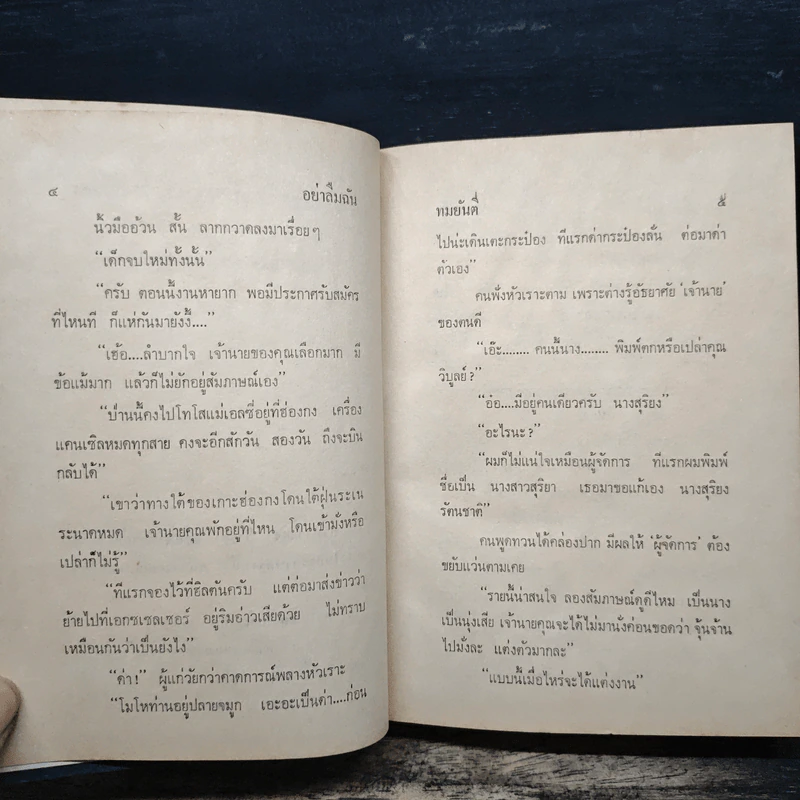 ๔
อย่าลืมฉัน
นิ้วมืออ้วน สั้น ลากกวาดลงมาเรื่อยๆ
“เด็กจบใหม่ทั้งนั้น”
“ครับ ตอนนี้งานหายาก พอมีประกาศรับสมัคร
ที่ไหนที ก็แห่กันมายังงี้....”
“เฮ้อ....ลำบากใจ เจ้านายของคุณเลือกมาก มี
ข้อแม้มาก แล้วก็ไม่ยักอยู่สัมภาษณ์เอง”
“ป่านนี้คงไปโทโสแม่เอลซี่อยู่ที่ฮ่องกง เครื่อง
แคนเซิลหมดทุกสาย คงจะอีกสักวัน สองวัน ถึงจะบิน
กลับได้”
“เขาว่าทางใต้ของเกาะฮ่องกงโดนใต้ฝุ่นระเน
ระนาดหมด เจ้านายคุณพักอยู่ที่ไหน โดนเข้ามั่งหรือ
เปล่าก็ไม่รู้”
“ทีแรกจองไว้ที่ฮิลตันครับ แต่ต่อมาส่งข่าวว่า
ย้ายไปที่เอกซเซลเซอร์ อยู่ริมอ่าวเสียด้วย ไม่ทราบ
เหมือนกันว่าเป็นยังไง”
“ด่า!” ผู้แก่วัยกว่าคาดการณ์พลางหัวเราะ
“โมโหท่านอยู่ปลายจมูก เอะอะเป็นด่า....ก่อน
ทมยันตี
๕
ไปน่ะเดินเตะกระป๋อง ทีแรกด่ากระป๋องลั่น ต่อมาด่า
ตัวเอง”
คนฟังหัวเราะตาม เพราะต่างรู้อัธยาศัย ‘เจ้านาย’
ของตนดี
“เอ๊ะ........ คนนี้นาง........ พิมพ์ตกหรือเปล่าคุณ
วิบูลย์?”
“อ๋อ....มีอยู่คนเดียวครับ นางสุริยง”
“อะไรนะ?”
“ผมก็ไม่แน่ใจเหมือนผู้จัดการ ทีแรกผมพิมพ์
ชื่อเป็น นางสาวสุริยา เธอมาขอแก้เอง นางสุริยง
รัตนชาติ”
คนพูดทวนได้คล่องปาก มีผลให้ ‘ผู้จัดการ’ ต้อง
ขยับแว่นตามเคย
“รายนี้น่าสนใจ ลองสัมภาษณ์ดูดีไหม เป็นนาง
เป็นนุ่งเสีย เจ้านายคุณจะได้ไม่มานั่งค่อนขอดว่า จุ้นจ้าน
ไปมั่งละ แต่งตัวมากละ”
“แบบนี้เมื่อไหร่จะได้แต่งงาน”